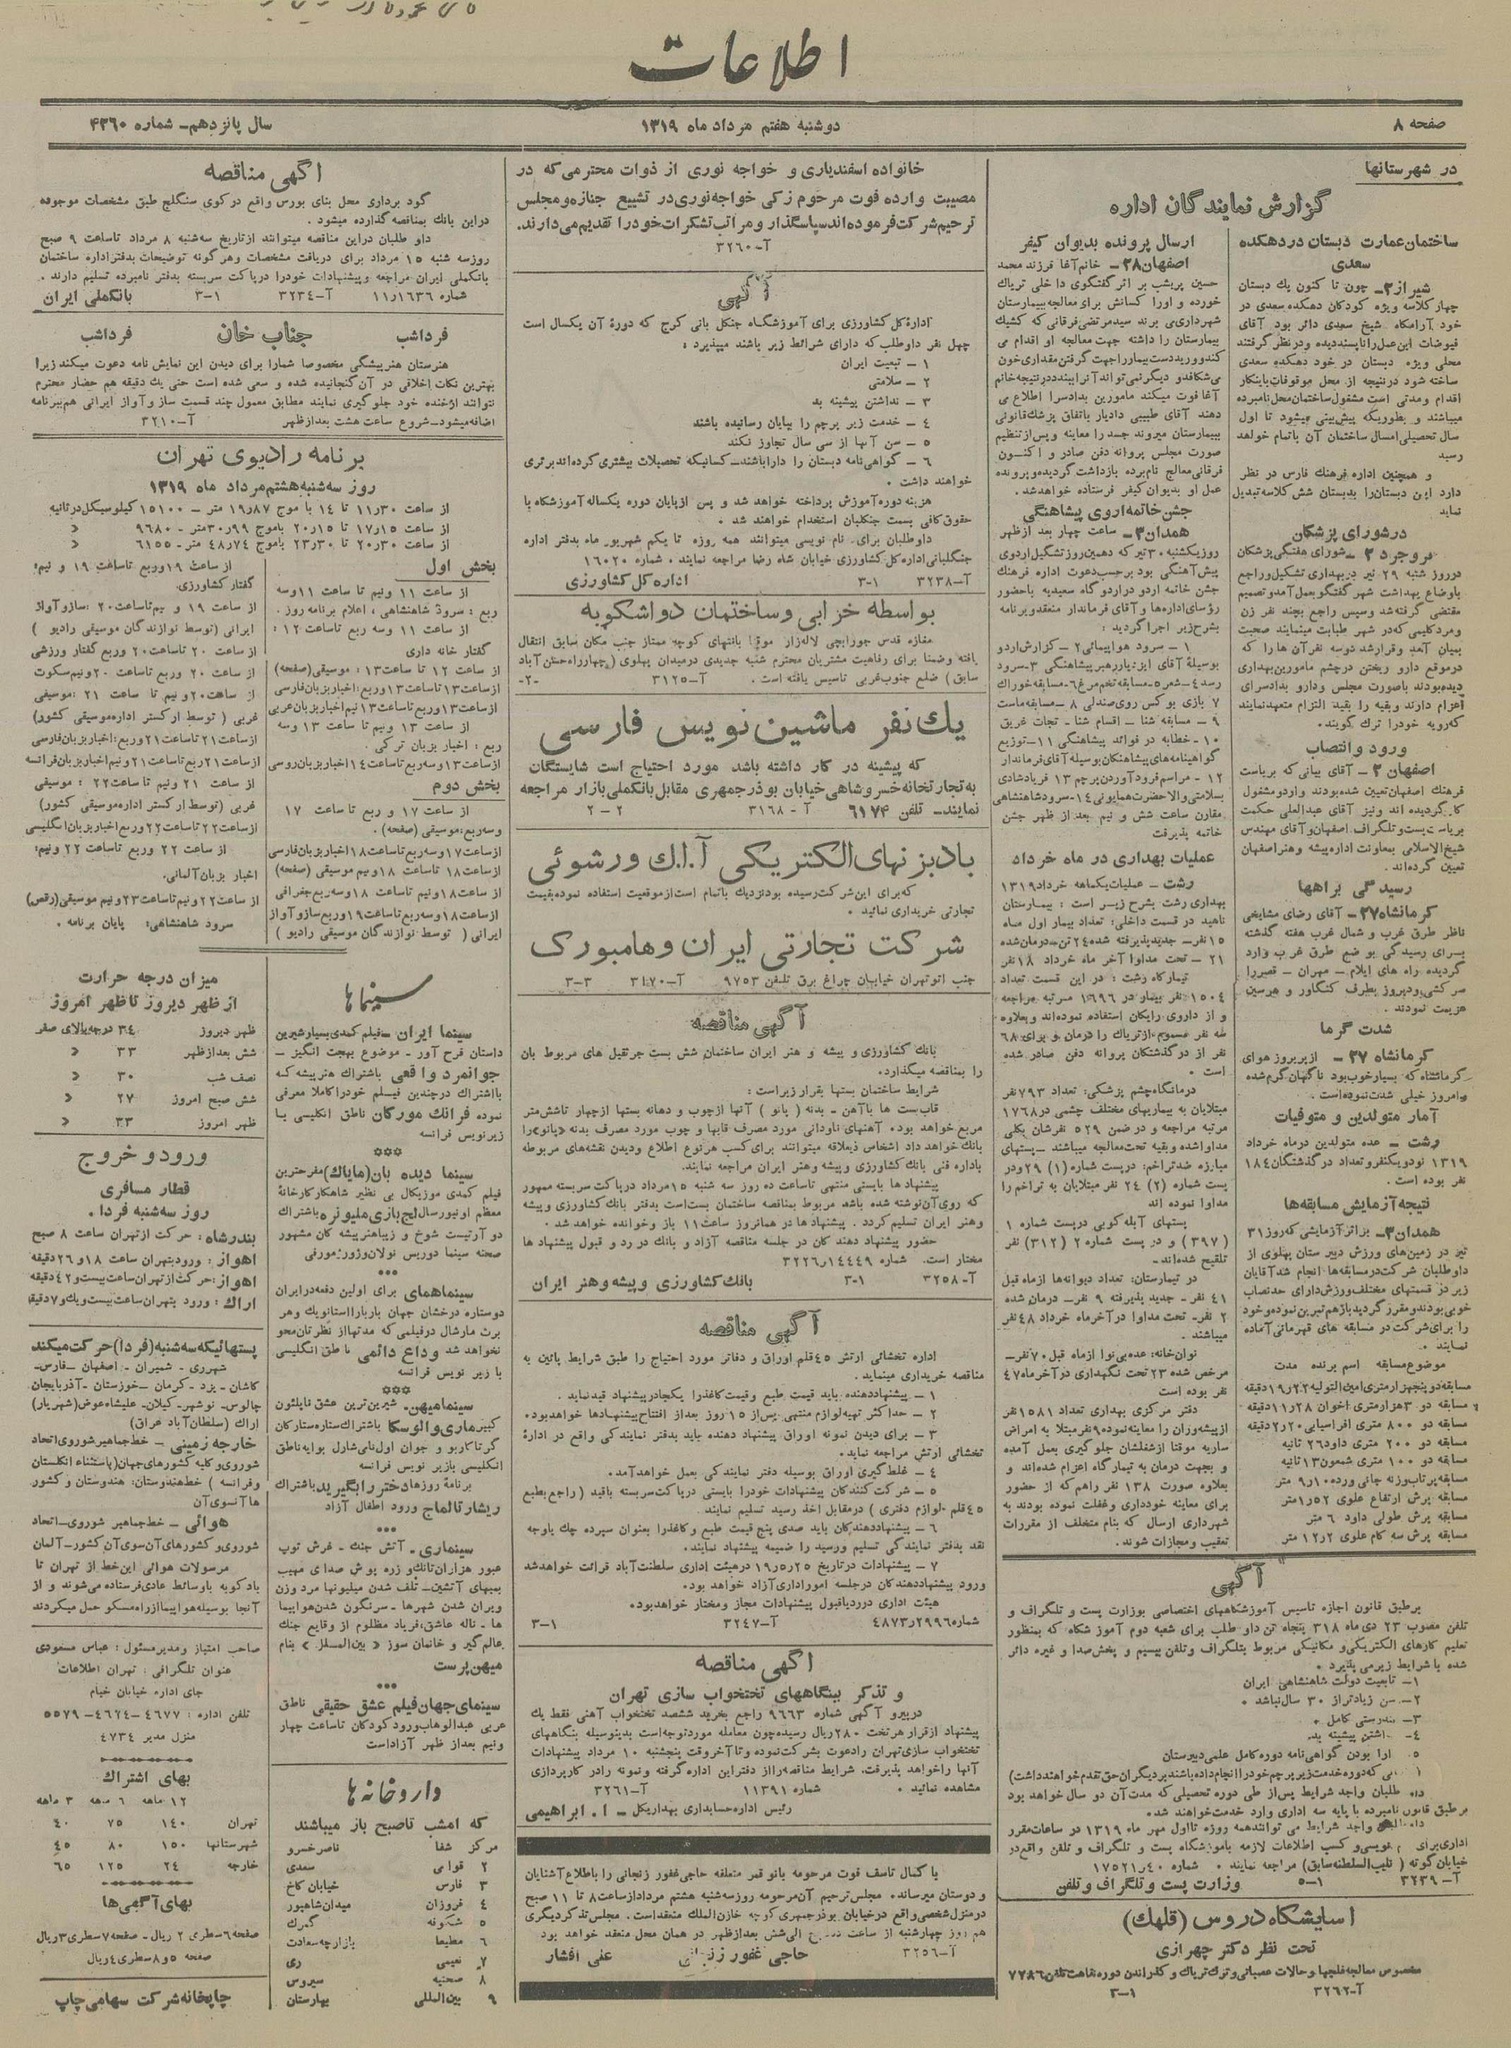 اطلاعات
صفحه ۸
دوشنبه هفتم مرداد ماه ۱۳۱۹
سال پانزدهم- شماره ۴۳۶۰
در شهرستانها
گزارش نمایندگان اداره
ساختمان عمارت دبستان در دهکده
سعدی
شیراز۲- چون تا کنون یک دبستان
چهار کلاسه ویژه کودکان دهکده سعدی در
خود آرامگاه شیخ سعدی دائر بود آقای
فیوضات این عمل را ناپسندیده و در نظر گرفتند
محلی ویژه دبستان در خود دهکده سعدی
ساخته شود در نتیجه از محل موقوفات باینکار
اقدام و مدتی است مشغول ساختمان محل نامبرده
میباشند و بطوریکه پیش بینی میشود تا اول
سال تحصیلی امسال ساختمان آن باتمام خواهد
رسید
و همچنین اداره فرهنگ فارس در نظر
دارد این دبستان را بدبستان شش کلاسه تبدیل
نماید
در شورای پزشکان
بروجرد ۲- شورای هفتگی پزشکان
در روز شنبه ۲۹ تیر در بهداری تشکیل و راجع
باوضاع بهداشت شهر گفتگو بعمل آمد و تصمیم
مقتضی گرفته شد و سپس راجع بچند نفر زن
و مرد کلیمی که در شهر طبابت مینمایند صحبت
بمیان آمد و قرار شد دوسه نفر آن ها را که
در موقع دارو ریختن در چشم مامورین بهداری
دیده بودند باصورت مجلس و دارو بدادسرای
اعزام دارند و بقیه را بقید التزام متعهد نمایند
که رویه خود را ترک گویند.
ورود و انتصاب
اصفهان ۲- آقای بیانی که بریاست
فرهنگ اصفهان تعیین شده بودند وارد و مشغول
کار گردیده اند و نیز آقای عبدالعلی حکمت
بریاست پست و تلگراف اصفهان و آقای مهندس
شیخ الاسلامی بمعاونت اداره پیشه و هنر اصفهان
تعیین گرده اند.
رسیدگی براهها
کرمانشاه ۲۷- آقای رضای مشایخی
ناظر طرق غرب و شمال غرب هفته گذشته
برای رسیدگی بو ضع طرق غرب وارد
گردیده راه های ایلام- مهران - قصر را
سرکشی و دیروز بطرف کنگاور و هرسین
عزیمت نمودند.
شدت گرما
کرمانشاه ۲۷- از پریروز هوای
کرمانشاه که بسیار خوب بود ناگهان گرم شده
و امروز خیلی شدت نموده است.
آمار متولدین و متوفیات
رشت - عده متولدین در ماه خرداد
۱۳۱۹ نود و یکنفر و تعداد در گذشتگان ۱۸۴
نفر بوده است.
نتیجه آزمایش مسابقه ها
همدان۳- بر اثر آزمایشی که روز ۳۱
تیر در زمین های ورزش دبیرستان پهلوی از
داوطلبان شرکت در مسابقه ها انجام شد آقایان
زیر در قسمتهای مختلف ورزش دارای حد نصاب
خوبی بودند و مقرر گردید بازهم تمرین نموده و خود
را برای شرکت در مسابقه های قهرمانی آماده
نمایند.
موضوع مسابقه اسم برنده مدت
مسابقه دو پنجهزار متری امین التولیه ۱۹٫۲۲ دقیقه
مسابقه دو ۳ هزار متری اخوان ۱۱٫۲۸ دقیقه
مسابقه دو ۸۰۰ متری افراسیابی ۲٫۲۰ دقیقه
مسابقه دو ۲۰۰ متری داود ۲۶ ثانیه
مسابقه دو ۱۰۰ متری شمعون ۱۳ ثانیه
مسابقه پرتاب وزنه جانی ورده ۹٫۱۰ متر
مسابقه پرش ارتفاع علوی ۱٫۵۲ متر
مسابقه پرش طولی داود ۶ متر
مسابقه پرش سه گام علوی ۱۲٫۲ متر
ارسال پرونده بدیوان کیفر
اصفهان ۲۸- خانم آغا فرزند محمد
حسین پریشب بر اثر گفتگوی داخلی تریاک
خورده و اورا کسانش برای معالجه ببیمارستان
شهرداری می برند سید مرتضی فرقانی که کشیک
بیمارستان را داشته جهت معالجه او اقدام می
کند و ورید دست بیمار را جهت گرفتن مقداری خون
می شکافد و دیگر نمی تواند آنرا ببندد در نتیجه خانم
آغا فوت میکند مامورین بدادسرا اطلاع می
دهند آقای طبیبی دادیار باتفاق پزشک قانونی
ببیمارستان میروند جسد را معاینه و پس از تنظیم
صورت مجلس پروانه دفن صادر و اکنون
فرقانی معالج نامبرده بازداشت گردیده و پرونده
عمل او بدیوان کیفر فرستاده خواهد شد.
جشن خاتمه اروی پیشاهنگی
همدان۳- ساعت چهار بعد از ظهر
روز یکشنبه ۳۰ تیر که دهمین روز تشکیل اردوی
پیش آهنگی بود بر حسب دعوت اداره فرهنگ
جشن خاتمه اردو در اردوگاه سعیدیه باحضور
رؤسای اداره ها و آقای فرماندار منعقد و برنامه
بشرح زیر اجرا گردید:
۱ - سرود هواپیمائی ۲- گزارش اردو
بوسیله آقای ایزدیار رهبر پیشاهنگی ۳-سرود
رسد ۴- شعر ۵-مسابقه تخم مرغ ۶-مسابقه خوراک
۷ بازی بوکس روی صندلی ۸ -مسابقه ماست
۹ - مسابقه شنا - اقسام شنا - نجات غریق
۱۰- خطابه در فوائد پیشاهنگی ۱۱-توزیع
گواهینامه های پیشاهنگان بوسیله آقای فرماندار
۱۲ - مراسم فرود آوردن پرچم ۱۳ فریاد شادی
بسلامتی والاحضرت همایونی ۱۴-سرود شاهنشاهی
مقارن ساعت شش و نیم بعد از ظهر جشن
خاتمه پذیرفت
عملیات بهداری در ماه خرداد
رشت - عملیات یکماهه خرداد ۱۳۱۹
بهداری رشت بشرح زیر است: بیمارستان
ناهید در قسمت داخلی: تعداد بیمار اول ماه
۱۵ نفر- جدید پذیرفته شده ۲۴ تن-درمان شده
۲۱ - تحت مداوا آخر ماه خرداد ۱۸ نفر
تیمارگاه رشت: در این قسمت تعداد
۱۵۰۴ نفر بیمار در ۱۶۹۶ مرتبه مراجعه
و از داروی رایگان استفاده نموده اند و بعلاوه
سه نفر مسموم از تریاک را درمان و برای ۶۸
نفر از در گذشتگان پروانه دفن صادر شده
است.
درمانگاه چشم پزشکی: تعداد ۷۹۳ نفر
مبتلایان به بیماریهای مختلف چشمی در ۱۷۶۸
مرتبه مراجعه و در ضمن ۵۲۹ نفرشان بکلی
مداوا شده و بقیه تحت معالجه میباشند-پستهای
مبارزه ضد تراخم: در پست شماره (۱) ۲۹ و در
پست شماره (۲) ۲۴ نفر مبتلایان به تراخم را
مداوا نموده اند
پستهای آبله کوبی در پست شماره ۱
(۳۹۷) و در پست شماره ۲ (۳۱۲) نفر
تلقیح شده اند-
در تیمارستان: تعداد دیوانه ها از ماه قبل
۴۱ نفر- جدید پذیرفته ۹ نفر- درمان شده
۲ نفر- تحت مداوا در آخر ماه خرداد ۴۸ نفر
میباشند.
نوان خانه: عده بی نوا از ماه قبل ۷۰ نفر-
مرخص شده ۲۳ تحت نگهداری در آخر ماه ۴۷
نفر بوده است
دفتر مرکزی بهداری تعداد ۱۵۸۱ نفر
از پیشه وران را معاینه نموده ۹ نفر مبتلا به امراض
ساریه موقتا از شغلشان جلوگیری بعمل آمده
و بجهت درمان به تیمارگاه اعزام شده اند و
بعلاوه صورت ۱۳۸ نفر راهم که از حضور
برای معاینه خودداری و غفلت نموده بودند به
شهرداری ارسال که بنام متخلف از مقررات
تعقیب و مجازات شوند.
آگهی
بر طبق قانون اجازه تاسیس آموزشگاههای اختصاصی بوزارت پست و تلگراف و
تلفن مصوب ۲۳ دی ماه ۳۱۸ پنجاه تن داو طلب برای شعبه دوم آموزشگاه که بمنظور
تعلیم کارهای الکتریکی و مکانیکی مربوط بتلگراف و تلفن بیسیم و پخش صدا و غیره دائر
شده با شرایط زیر می پذیرد.
۱- تابعیت دولت شاهنشاهی ایران
۲- سن زیادتر از ۳۰ سال نباشد
۳- تندرستی کامل
۵- دارا بودن گواهی نامه دوره کامل علمی دبیرستان
طلبان واجد شرایط پس از طی دوره تحصیلی که مدت آن دو سال خواهد بود
بر طبق قانون نامبرده با پایه سه اداری وارد خدمت خواهند شد.
واجد شرایط می توانند همه روزه تا اول مهر ماه ۱۳۱۹ در ساعات مقرر
اداری برای نویسی و کسب اطلاعات لازمه بآموزشگاه پست و تلگراف و تلفن واقع در
خیابان گوته مراجعه نمایند. شماره ۱۷۵۲۱٫۴۰
آ-۳۲۳۹ ۵-۱ وزارت پست و تلگراف و تلفن
آسایشگاه دروس (قلهک)
تحت نظر دکتر چهرازی
مخصوص معالجه فلجها و حالات عصبانی و ترک تریاک و گذراندن دوره نقاهت تلفن ۷۷۸۶
آ-۳۲۶۲ ۳-۱
خانواده اسفندیاری و خواجه نوری از ذوات محترمی که در
مصیبت وارده فوت مرحوم زکی خواجه نوری در تشییع جنازه و مجلس
ترحیم شرکت فرموده اند سپاسگذار و مراتب تشکرات خود را تقدیم می دارند.
آ-۳۲۶۰
آگهی
اداره کل کشاورزی برای آموزشگاه جنگل بانی کرج که دوره آن یکسال است
چهل نفر داوطلب که دارای شرائط زیر باشند میپذیرد:
۱ - تبعیت ایران
۲ - سلامتی
۳ - نداشتن پیشینه بد
۴ - خدمت زیر پرچم را بپایان رسانیده باشند
۵ - سن آنها از سی سال تجاوز نکند
۶ - گواهی نامه دبستان را دارا باشند- کسانیکه تحصیلات بیشتری کرده اند برتری
خواهند داشت.
هزینه دوره آموزش پرداخته خواهد شد و پس از پایان دوره یکساله آموزشگاه با
حقوق کافی بسمت جنگلبان استخدام خواهند شد.
داوطلبان برای نام نویسی میتوانند همه روزه تا یکم شهریور ماه بدفتر اداره
جنگلبانی اداره کل کشاورزی خیابان شاه رضا مراجعه نمایند. شماره ۱۶۰۲۰
آ-۳۲۳۸ ۳-۱ اداره کل کشاورزی
بواسطه خرابی و ساختمان دواشکوبه
مغازه قدس جورابچی لاله زار موقتا بانتهای کوچه ممتاز جنب مکان سابق انتقال
یافته و ضمنا برای رفاهیت مشتریان محترم شعبه جدیدی در میدان پهلوی (چهارراه حسن آباد
سابق) ضلع جنوب غربی تاسیس یافته است. آ-۳۱۲۵ -۲-
یک نفر ماشین نویس فارسی
که پیشینه در کار داشته باشد مورد احتیاج است شایستگان
به تجارتخانه خسروشاهی خیابان بوذرجمهری مقابل بانک ملی بازار مراجعه
نمایند- تلفن ۶۱۷۴ آ - ۳۱۶۸ ۲ - ۲
بادبزنهای الکتریکی آ.ا.ک ورشوئی
که برای این شرکت رسیده بود نزدیک باتمام است از موقعیت استفاده نموده بقیمت
تجارتی خریداری نمائید.
شرکت تجارتی ایران و هامبورک
جنب اتو تهران خیابان چراغ برق تلفن ۹۷۵۳ آ-۳۱۷۰ ۳-۳
آگهی مناقصه
بانک کشاورزی و پیشه و هنر ایران ساختمان شش بست جرثقیل های مربوط بان
را بمناقصه میگذارد.
شرایط ساختمان بستها بقرار زیر است:
قاب بست ها باآهن - بدنه (پانو) آنها از چوب و دهانه بستها از چهار تاشش متر
مربع خواهد بود. آهنهای ناودانی مورد مصرف قابها و چوب مورد مصرف بدنه (پانو) را
بانک خواهد داد اشخاص ذیعلاقه میتوانند برای کسب هر نوع اطلاع و دیدن نقشه های مربوطه
باداره فنی بانک کشاورزی و پیشه و هنر ایران مراجعه نمایند.
پیشنهاد ها بایستی منتهی تاساعت ده روز سه شنبه ۱۵ مرداد در پاکت سر بسته ممهور
که روی آن نوشته شده باشد مربوط بمناقصه ساختمان بست است بدفتر بانک کشاورزی و پیشه
و هنر ایران تسلیم گردد. پیشنهاد ها در همانروز ساعت ۱۱ باز و خوانده خواهد شد.
حضور پیشنهاد دهند گان در جلسه مناقصه آزاد و بانک در رد و قبول پیشنهاد ها
مختار است. شماره ۳۲۲۶٫۱۴۴۴۹
آ-۳۲۵۸ ۳-۱ بانک کشاورزی و پیشه و هنر ایران
آگهی مناقصه
اداره تخشائی ارتش ۴۵ قلم اوراق و دفاتر مورد احتیاج را طبق شرایط پائین به
مناقصه خریداری مینماید.
۱ - پیشنهاد دهنده باید قیمت طبع و قیمت کاغذرا یکجا در پیشنهاد قید نماید.
۲ - حداکثر تهیه لوازم منتهی پس از ۱۵ روز بعد از افتتاح پیشنهادها خواهد بود.
۳ - برای دیدن نمونه اوراق پیشنهاد دهنده باید بدفتر نمایندگی واقع در اداره
تخشائی ارتش مراجعه نماید.
۴ - غلط گیری اوراق بوسیله دفتر نمایندگی بعمل خواهد آمد.
۵ - شرکت کنندگان پیشنهادات خودرا بایستی در پاکت سر بسته باقید (راجع بطبع
۴۵ قلم - لوازم دفتری) در مقابل اخذ رسید تسلیم نمایند.
۶ - پیشنهاد دهندگان باید صدی پنج قیمت طبع و کاغذرا بعنوان سپرده چک یاوجه
نقد بدفتر نمایندگی تسلیم و رسید را ضمیمه پیشنهاد نمایند.
۷ - پیشنهادات در تاریخ ۱۹٫۵٫۲۵ در هیئت اداری سلطنت آباد قرائت خواهد شد
ورود پیشنهاد دهندگان در جلسه امور اداری آزاد خواهد بود.
هیئت اداری در رد یا قبول پیشنهادات مجاز و مختار خواهد بود.
شماره ۴۸۷۳٫۲۹۹۶ آ-۳۲۴۷ ۳-۱
آگهی مناقصه
و تذکر ببنگاههای تختخواب سازی تهران
در پیرو آگهی شماره ۹۶۶۳ راجع بخرید ششصد تختخواب آهنی فقط یک
پیشنهاد از قرار هر تخت ۲۸۰ ریال رسیده چون معامله مورد توجه است بدینوسیله بنگاههای
تختخواب سازی تهران را دعوت بشرکت نموده و تا آخر وقت پنجشنبه ۱۰ مرداد پیشنهادات
آنها را خواهد پذیرفت. شرایط مناقصه را از دفتر این اداره گرفته و نمونه را در کار پردازی
مشاهده نمائید. شماره ۱۱۳۹۱ آ-۳۲۶۱
رئیس اداره حسابداری بهداریکل - ا. ابراهیمی
با کمال تاسف فوت مرحومه بانو قمر متعلقه حاجی غفور زنجانی را باطلاع آشنایان
و دوستان میرساند. مجلس ترحیم آن مرحومه روز سه شنبه هشتم مرداد از ساعت ۸ تا ۱۱ صبح
در منزل شخصی واقع در خیابان بوذرجمهری کوچه خازن الملک منعقد است. مجلس تذکر دیگری
هم روز چهارشنبه از ساعت الی شش بعد از ظهر در همان محل منعقد خواهد بود
آ-۳۲۵۶ حاجی غفور زنجانی علی افشار
آگهی مناقصه
گود برداری محل بنای بورس واقع در کوی سنگلج طبق مشخصات موجوده
در این بانک بمناقصه گذارده میشود.
داو طلبان در این مناقصه میتوانند از تاریخ سه شنبه ۸ مرداد تا ساعت ۹ صبح
روز سه شنبه ۱۵ مرداد برای دریافت مشخصات و هر گونه توضیحات بدفتر اداره ساختمان
بانک ملی ایران مراجعه و پیشنهادات خودرا در پاکت سربسته بدفتر نامبرده تسلیم دارند.
شماره ۱۱٫۱۶۳۶ آ-۳۲۳۴ ۳-۱ بانک ملی ایران
فرداشب جناب خان فرداشب
هنرستان هنرپیشگی مخصوصا شمارا برای دیدن این نمایش نامه دعوت میکند زیرا
بهترین نکات اخلاقی در آن گنجانیده شده و سعی شده است حتی یک دقیقه هم حضار محترم
نتوانند از خنده خود جلوگیری نمایند مطابق معمول چند قسمت ساز و آواز ایرانی هم ببرنامه
اضافه میشود-شروع ساعت هشت بعد از ظهر آ-۳۲۱۰
برنامه رادیوی تهران
روز سه شنبه هشتم مرداد ماه ۱۳۱۹
از ساعت ۱۱٫۳۰ تا ۱۴ با موج ۱۹٫۸۷ متر - ۱۵۱۰۰ کیلوسیکل در ثانیه
از ساعت ۱۷٫۱۵ تا ۲۰٫۱۵ باموج ۳۰٫۹۹ متر - ۹۶۸۰ »
از ساعت ۲۰٫۳۰ تا ۲۳٫۳۰ باموج ۴۸٫۷۴ متر - ۶۱۵۵ »
بخش اول
از ساعت ۱۱ و نیم تا ساعت ۱۱ و سه
ربع: سرود شاهنشاهی، اعلام برنامه روز.
از ساعت ۱۱ و سه ربع تا ساعت ۱۲:
گفتار خانه داری
از ساعت ۱۲ تا ساعت ۱۳: موسیقی (صفحه)
از ساعت ۱۳ تا ساعت ۱۳ و ربع: اخبار بزبان فارسی
از ساعت ۱۳ و ربع تا ساعت ۱۳ و نیم اخبار بزبان عربی
از ساعت ۱۳ و نیم تا ساعت ۱۳ و سه
ربع: اخبار بزبان ترکی.
از ساعت ۱۳ و سه ربع تا ساعت ۱۴ اخبار بزبان روسی
بخش دوم
از ساعت ۱۷ و ربع تا ساعت ۱۷
و سه ربع: موسیقی (صفحه).
از ساعت ۱۷ و سه ربع تا ساعت ۱۸ اخبار بزبان فارسی
از ساعت ۱۸ تا ساعت ۱۸ و نیم موسیقی (صفحه)
از ساعت ۱۸ و نیم تا ساعت ۱۸ و سه ربع جغرافی
از ساعت ۱۸ و سه ربع تا ساعت ۱۹ و ربع ساز و آواز
ایرانی (توسط نوازندگان موسیقی رادیو)
از ساعت ۱۹ و ربع تا ساعت ۱۹ و نیم:
گفتار کشاورزی.
از ساعت ۱۹ و نیم تا ساعت ۲۰: ساز و آواز
ایرانی (توسط نوازندگان موسیقی رادیو)
از ساعت ۲۰ تا ساعت ۲۰ و ربع گفتار ورزشی
از ساعت ۲۰ و ربع تا ساعت ۲۰ و نیم سکوت
از ساعت ۲۰ و نیم تا ساعت ۲۱: موسیقی
غربی (توسط ارکستر اداره موسیقی کشور)
از ساعت ۲۱ تا ساعت ۲۱ و ربع: اخبار بزبان فارسی
از ساعت ۲۱ و ربع تا ساعت ۲۱ و نیم اخبار بزبان فرانسه
از ساعت ۲۱ و نیم تا ساعت ۲۲: موسیقی
غربی (توسط ارکستر اداره موسیقی کشور)
از ساعت ۲۲ تا ساعت ۲۲ و ربع اخبار بزبان انگلیسی
از ساعت ۲۲ و ربع تا ساعت ۲۲ و نیم:
اخبار بزبان آلمانی.
از ساعت ۲۲ و نیم تا ساعت ۲۳ و نیم موسیقی (رقص)
سرود شاهنشاهی: پایان برنامه.
سینماها
سینما ایران - فیلم کمدی بسیار شیرین
داستان فرح آور - موضوع بهجت انگیز -
جوانمرد واقعی باشتراک هنرپیشه که
بااشتراک در چندین فیلم خودرا کاملا معرفی
نموده فرانک مورگان ناطق انگلیسی با
زیر نویس فرانسه
***
سینما دیده بان (مایاک) مفرحترین
فیلم کمدی موزیکال بی نظیر شاهکار کارخانه
معظم اونیورسال لج بازی ملیونره باشتراک
دو آرتیست شوخ و زیبا هنر پیشه گان مشهور
صحنه سینما دوریس نولان و ژورژ مورفی
***
سینما همای برای اولین دفعه در ایران
دوستاره درخشان جهان باربارا استانویک و هر
برت مارشال در فیلمی که مدتها از نظرتان محو
نخواهد شد وداع دائمی ناطق انگلیسی
با زیر نویس فرانسه
***
سینما میهن- شیرین ترین عشق ناپلئون
کبیر ماری والوسکا باشتراک ستاره ستارگان
گرتا گاربو و جوان اول نامی شارل بوایه ناطق
انگلیسی بازیر نویس فرانسه
برنامه روزها دختر را بگیرید باشتراک
ریشار تالماج ورود اطفال آزاد
***
سینماری- آتش جنگ - غرش توپ
عبور هزاران تانک و زره پوش صدای مهیب
بمبهای آتشین - تلف شدن میلیونها مرد و زن
ویران شدن شهرها - سرنگون شدن هواپیما
ها - ناله عاشق: فریاد مظلوم از وقایع جنگ
عالم گیر و خانمان سوز «بین المللی» بنام
میهن پرست
***
سینمای جهان فیلم عشق حقیقی ناطق
عربی عبدالوهاب ورود کودکان تا ساعت چهار
و نیم بعد از ظهر آزاد است
داروخانه ها
که امشب تاصبح باز میباشند
مرکز شفا ناصر خسرو
۲ قوامی سعدی
۳ فارس خیابان کاخ
۴ فروزان میدان شاهپور
۵ شکوفه گمرک
۶ مطبعا بازارچه سعادت
۷ نعیمی ری
۸ صحتیه سیروس
۹ بین المللی بهارستان
میزان درجه حرارت
از ظهر دیروز تا ظهر امروز
ظهر دیروز ۳۴ درجه بالای صفر
شش بعد از ظهر ۳۳ »
نصف شب ۳۰ »
شش صبح امروز ۲۷ »
ظهر امروز ۳۳ »
ورود و خروج
قطار مسافری
روز سه شنبه فردا.
بندرشاه: حرکت از تهران ساعت ۸ صبح
اهواز: ورود بتهران ساعت ۱۸ و ۲۶ دقیقه
اهواز: حرکت از تهران ساعت بیست و ۴۲ دقیقه
اراک: ورود بتهران ساعت بیست و یک و ۷ دقیقه
پستهائیکه سه شنبه (فردا) حرکت میکند
شهرری - شمیران - اصفهان - فارس-
کاشان - یزد - کرمان - خوزستان - آذربایجان
چالوس - نوشهر- گیلان- علیشاه عوض (شهریار)
اراک (سلطان آباد عراق)
خارجه زمینی - خط جماهیر شوروی اتحاد
شوروی و کلیه کشورهای جهان (باستثناء انگلستان
و فرانسه) خط هندوستان: هندوستان و کشور
ها آنسوی آن
هوائی - خط جماهیر شوروی-اتحاد
شوروی و کشورهای آن سوی آن کشور - آلمان
مرسولات هوائی این خط از تهران تا
باد کوبه باوسائط عادی فرستاده می شوند و از
آنجا بوسیله هواپیما از راه مسکو حمل میگردند
صاحب امتیاز و مدیر مسئول: عباس مسعودی
عنوان تلگرافی: تهران اطلاعات
جای اداره خیابان خیام
تلفن اداره: ۴۶۷۷-۴۶۲۴-۵۵۷۹
منزل مدیر ۴۷۳۴
بهای اشتراک
۱۲ ماهه ۶ ماهه ۳ ماهه
تهران ۱۴۰ ۷۵ ۴۰
شهرستانها ۱۵۰ ۸۰ ۴۵
خارجه ۲۴ ۱۲۵ ۶۵
بهای آگهی ها
صفحه ۶ سطری ۲ ریال - صفحه ۷ سطری ۳ ریال
صفحه ۵ و ۸ سطری ۴ ریال
چاپخانه شرکت سهامی چاپ